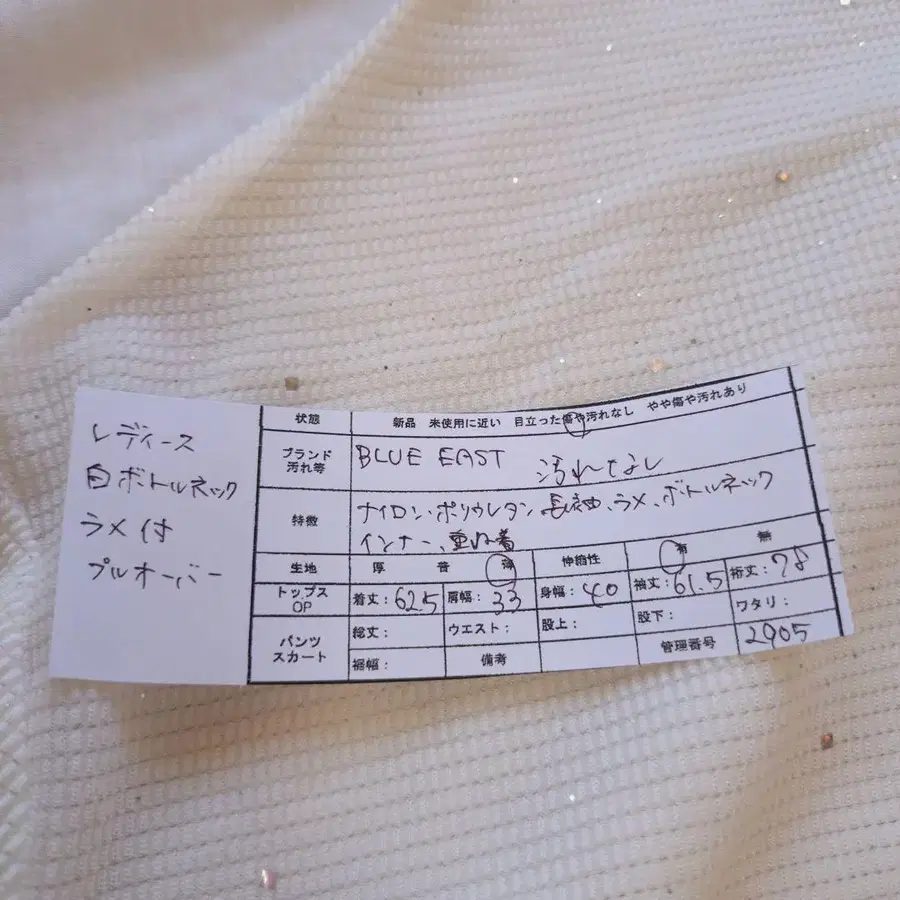 レディース
白ボトルネック
ラメ付
プルオーバー
状態 新品 未使用に近い 目立った傷や汚れなし やや傷や汚れあり
ブランド 汚れ等 BLUE EAST 汚れなし
特徴 ナイロン・ポリウレタン 長袖、ラメ、ボトルネック
インナー、重ね着
生地 厚 普 薄 伸縮性 有 無
トップス OP 着丈：62.5 肩幅：33 身幅：40 袖丈：61.5 裄丈：78
パンツ スカート 総丈： ウエスト： 股上： 股下： ワタリ：
裾幅： 備考 管理番号 2905